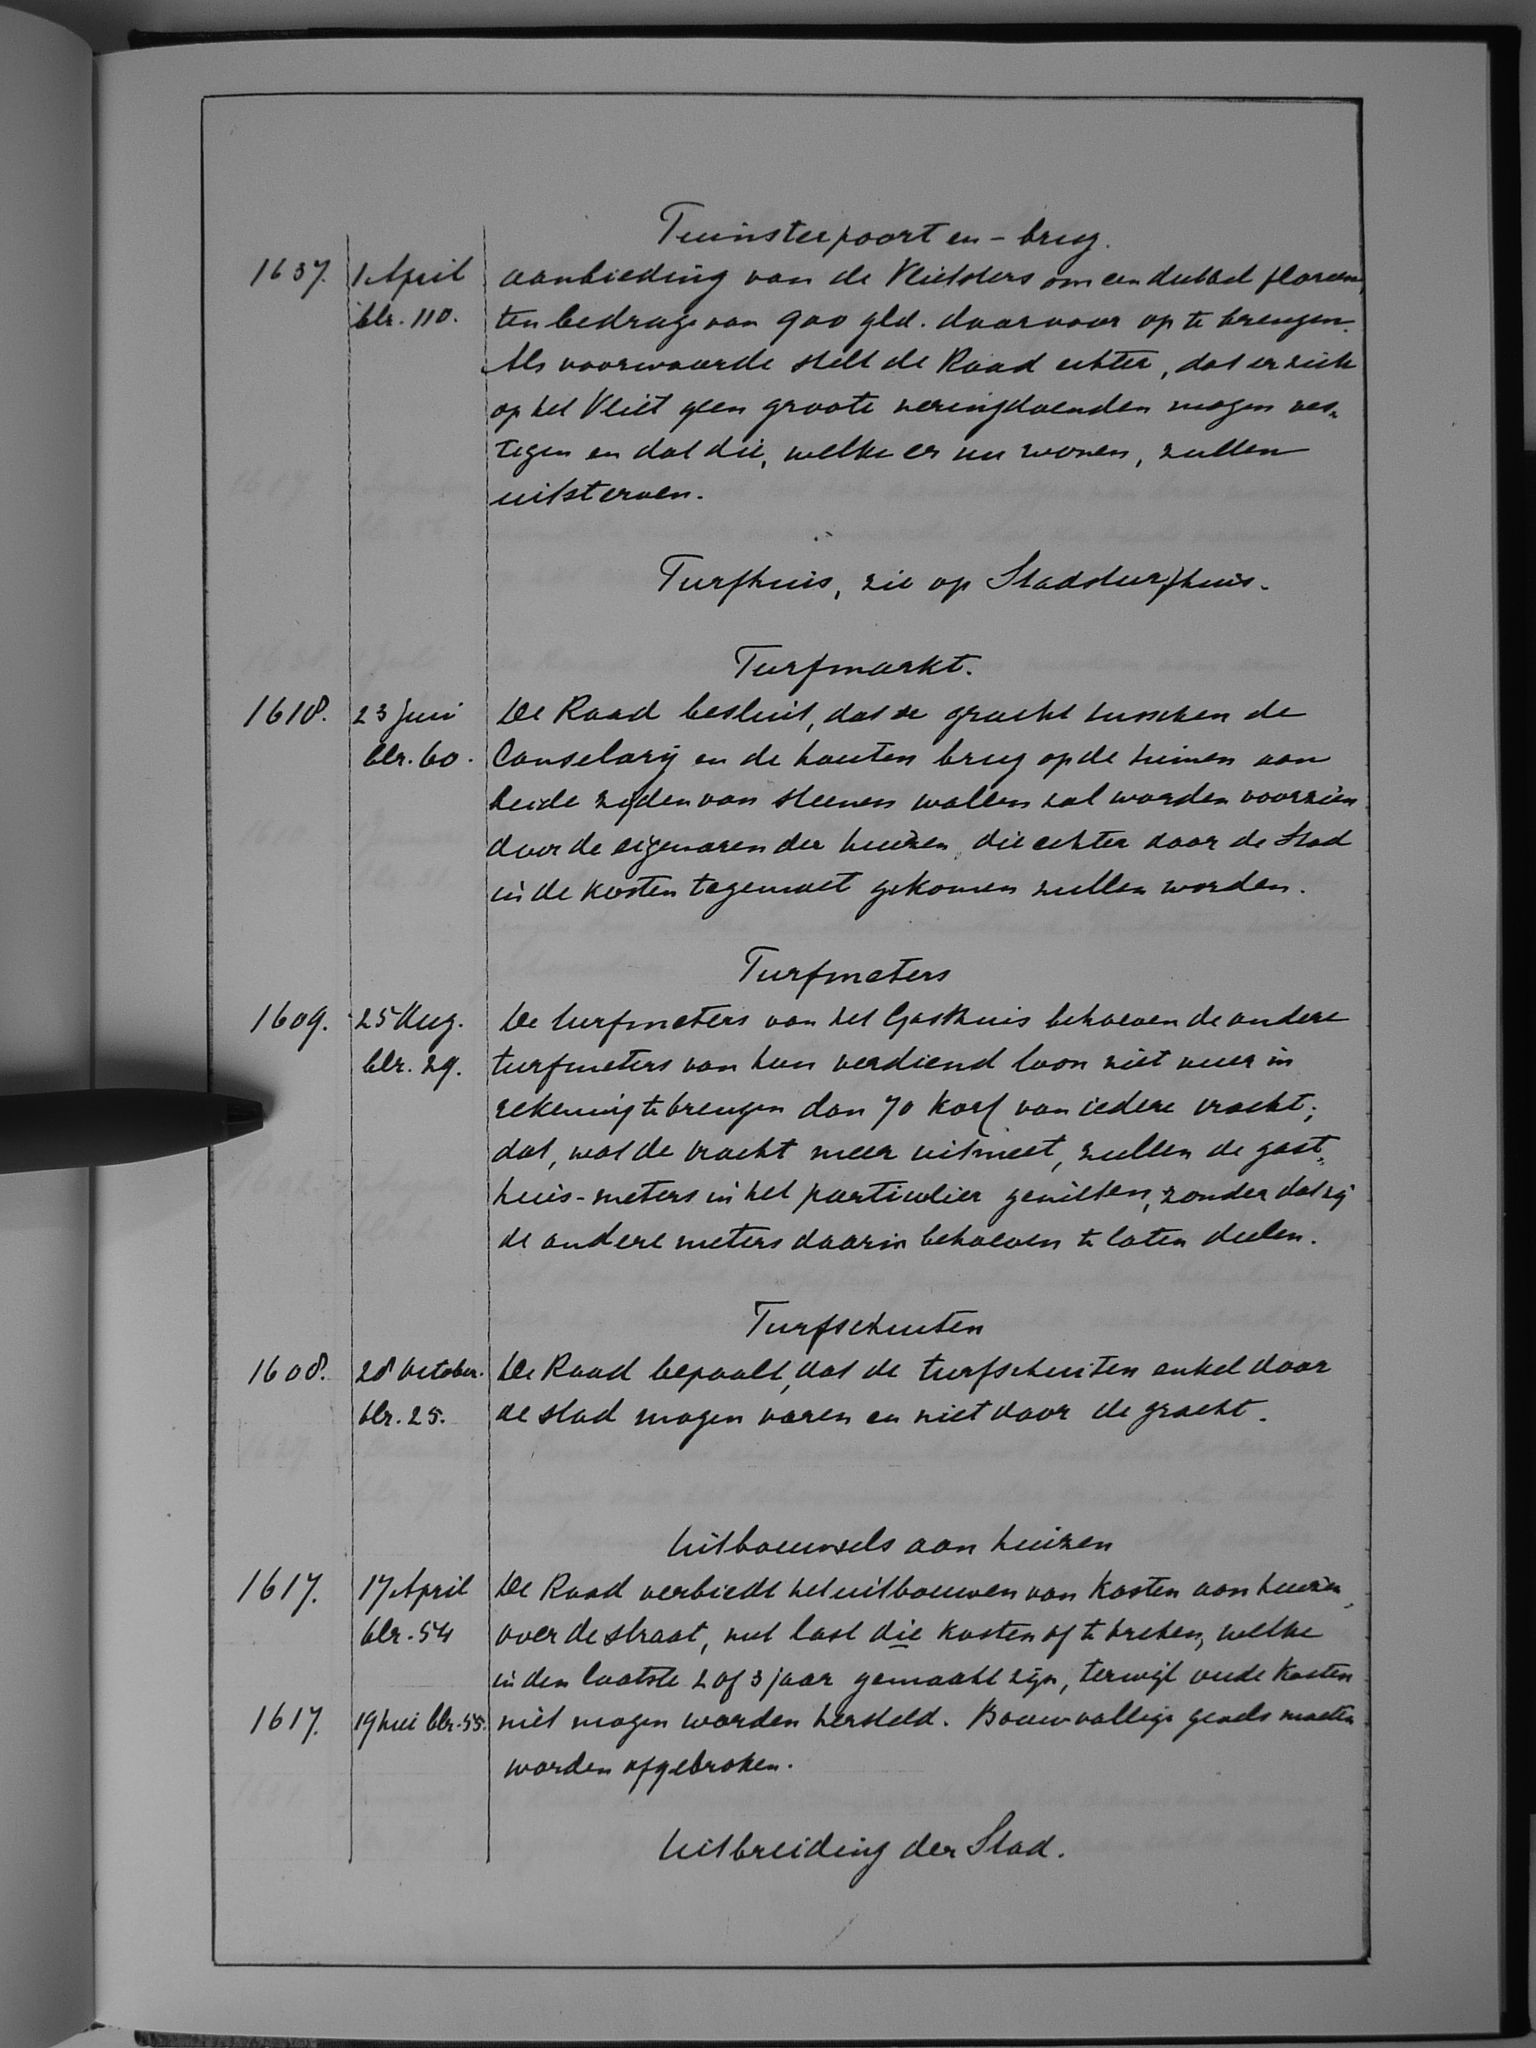 Tuinsterpoort en - brug.
1637. 1 April aanbieding van de Vlietsters om een dubbel floreen,
blz. 110. ten bedrage van 900 gld. daarvoor op te brengen.
Als voorwaarde stelt de Raad echter, dat er zich
op het Vliet geen groote neringdoenden mogen ves-
tigen en dat die, welke er nu wonen, zullen
uitsterven.
Turfhuis, zie op Stadsturfhuis.
Turfmarkt.
1618. 23 Juni De Raad besluit, dat de gracht tusschen de
blz. 60. Canselarij en de houten brug op de tuinen aan
beide zijden van steenen wallen zal worden voorzien
door de eigenaren der huizen, die echter door de Stad
in de kosten tegemoet gekomen zullen worden.
Turfmeters
1609. 25 Aug. De turfmeters van het Gasthuis behoeven de andere
blz. 29. turfmeters van hun verdiend loon niet meer in
rekening te brengen dan 70 korf van iedere vracht;
dat, wat de vracht meer uitmeet, zullen de gast-
huis-meters in het particulier genieten, zonder dat zij
de andere meters daarin behoeven te laten deelen.
Turfschuiten
1608. 28 October. De Raad bepaalt, dat de turfschuiten enkel door
blz. 25. de stad mogen varen en niet door de gracht.
Uitbouwsels aan huizen
1617. 17 April De Raad verbiedt het uitbouwen van Kasten aan huizen,
blz. 54 over de straat, met last die kasten af te breken, welke
in den laatste 2 of 3 jaar gemaakt zijn, terwijl oude Kasten
1617. 19 Mei blz. 55. niet mogen worden hersteld. Bouwvallige gevels moeten
worden afgebroken.
Uitbreiding der Stad.